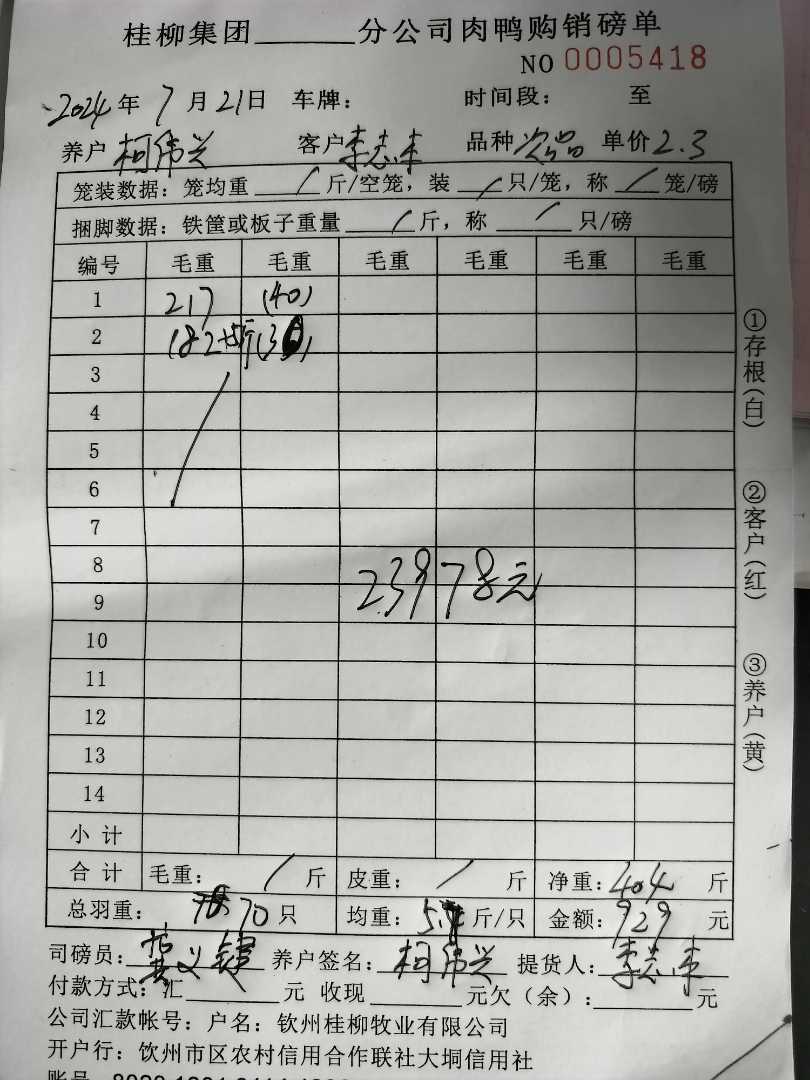 桂柳集团______分公司肉鸭购销磅单
NO 0005418
2024年7月21日 车牌: 时间段: 至
养户 柯伟兴 客户 李志来 品种 次品 单价 2.3
笼装数据: 笼均重 / 斤/空笼, 装 / 只/笼, 称 / 笼/磅
捆脚数据: 铁筐或板子重量 / 斤, 称 / 只/磅
编号 毛重 毛重 毛重 毛重 毛重 毛重
1 217 (40)
2 182+5斤(30)
3
4
5
6
7
8
23978元
9
10
11
12
13
14
小计
合计 毛重: / 斤 皮重: / 斤 净重: 404 斤
总羽重: 70 只 均重: 斤/只 金额: 929 元
司磅员: 养户签名: 柯伟兴 提货人: 李志来
付款方式: 汇______元 收现______元欠(余):______元
公司汇款帐号: 户名: 钦州桂柳牧业有限公司
开户行: 钦州市区农村信用合作联社大垌信用社
①存根(白)
②客户(红)
③养户(黄)